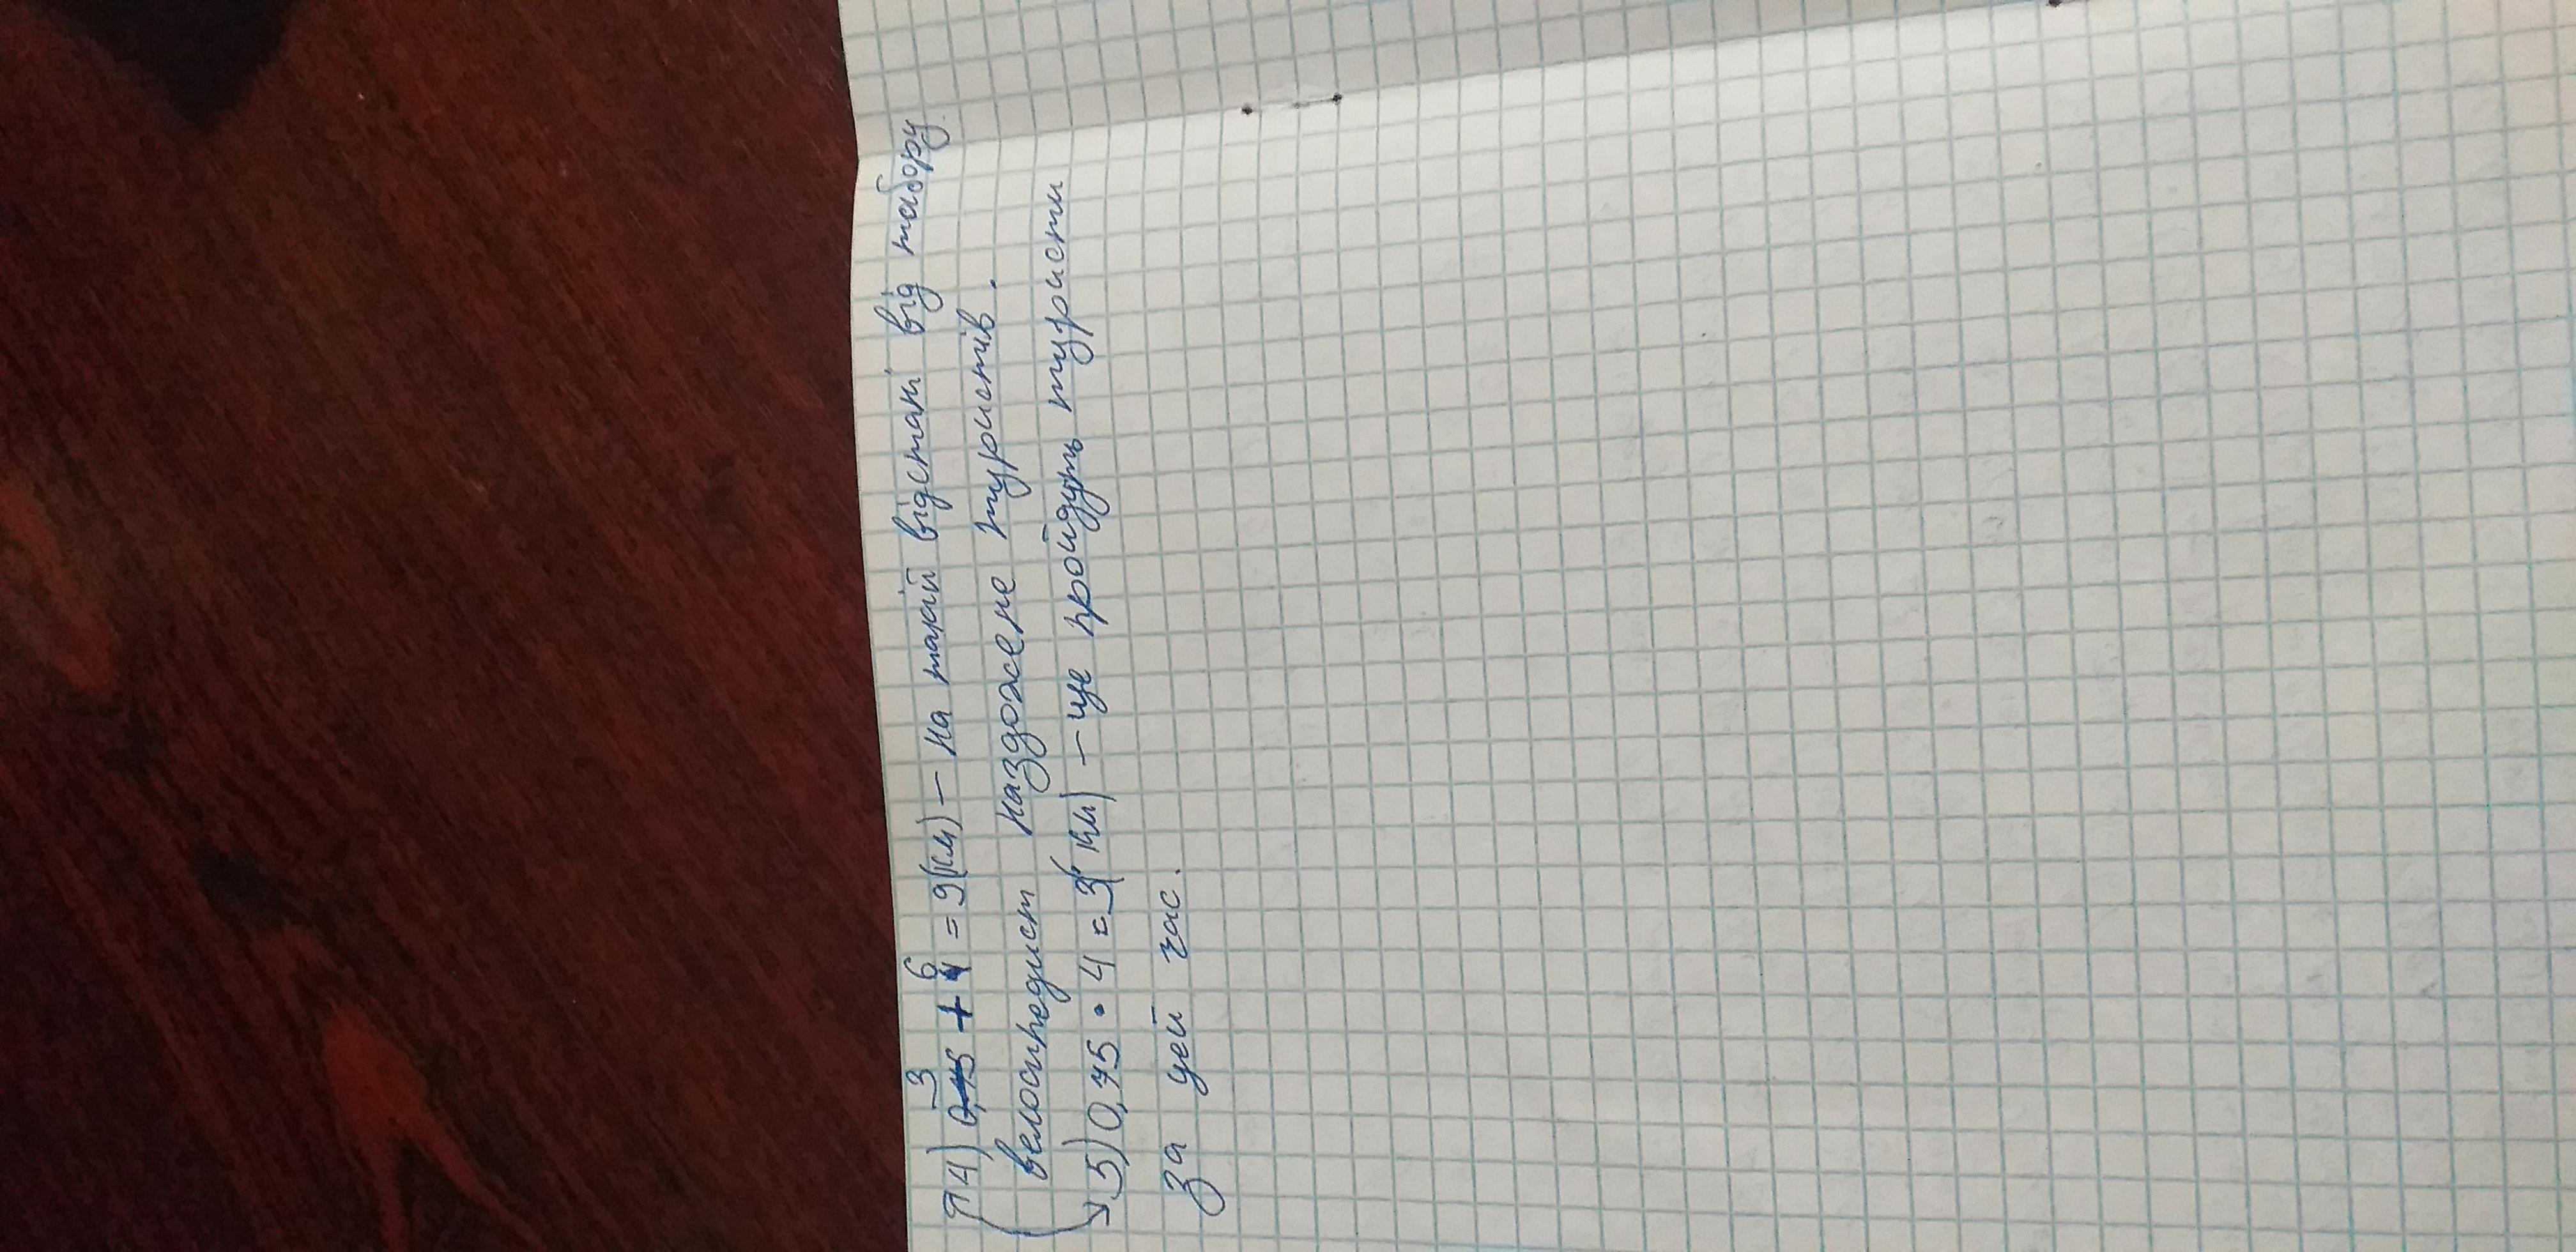 4) 3 + 6 = 9 (км) – на такій відстані від табору
велосипедист наздожене туристів.
5) 0,75 · 4 = 3 (км) – ще пройдуть туристи
за цей час.